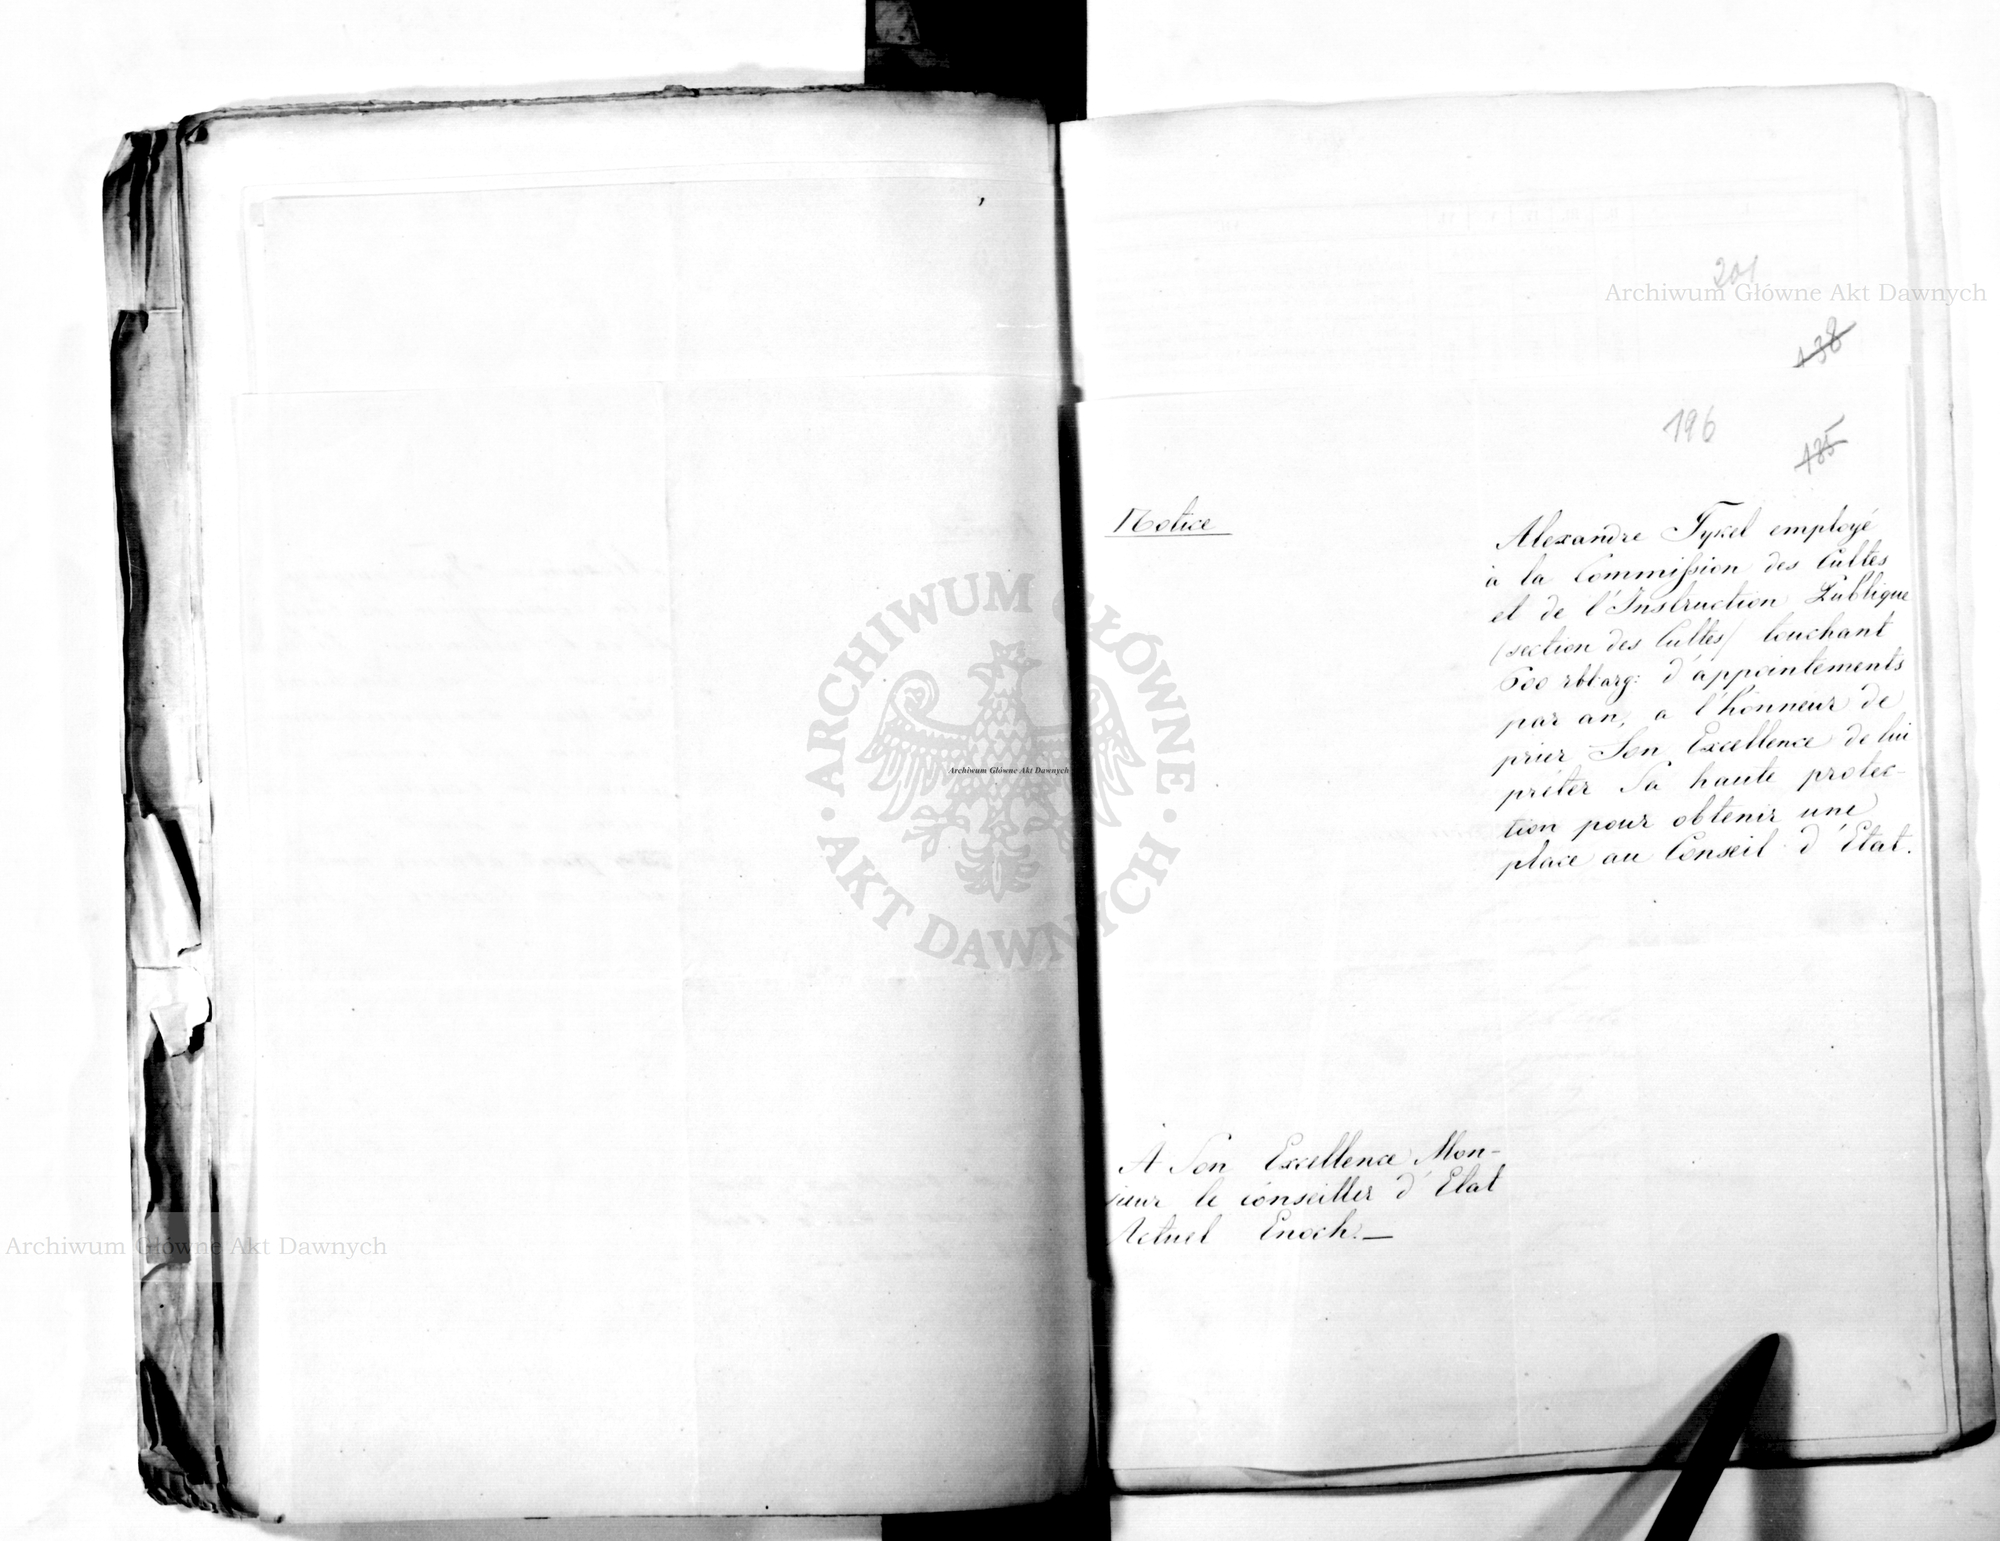 201
138
196
185
Notice
Alexandre Tykel employé
à la Commission des Cultes
et de l'Instruction Publique
(section des Cultes) touchant
600 rbl: arg: d'appointements
par an, a l'honneur de
prier Son Excellence de lui
prêter Sa haute protec-
tion pour obtenir une
place au Conseil d'Etat.
A Son Excellence Mon-
sieur le conseiller d'Etat
Actuel Enoch. —
Archiwum Główne Akt Dawnych
Archiwum Główne Akt Dawnych
Archiwum Główne Akt Dawnych
ARCHIWUM GŁÓWNE · AKT DAWNYCH ·